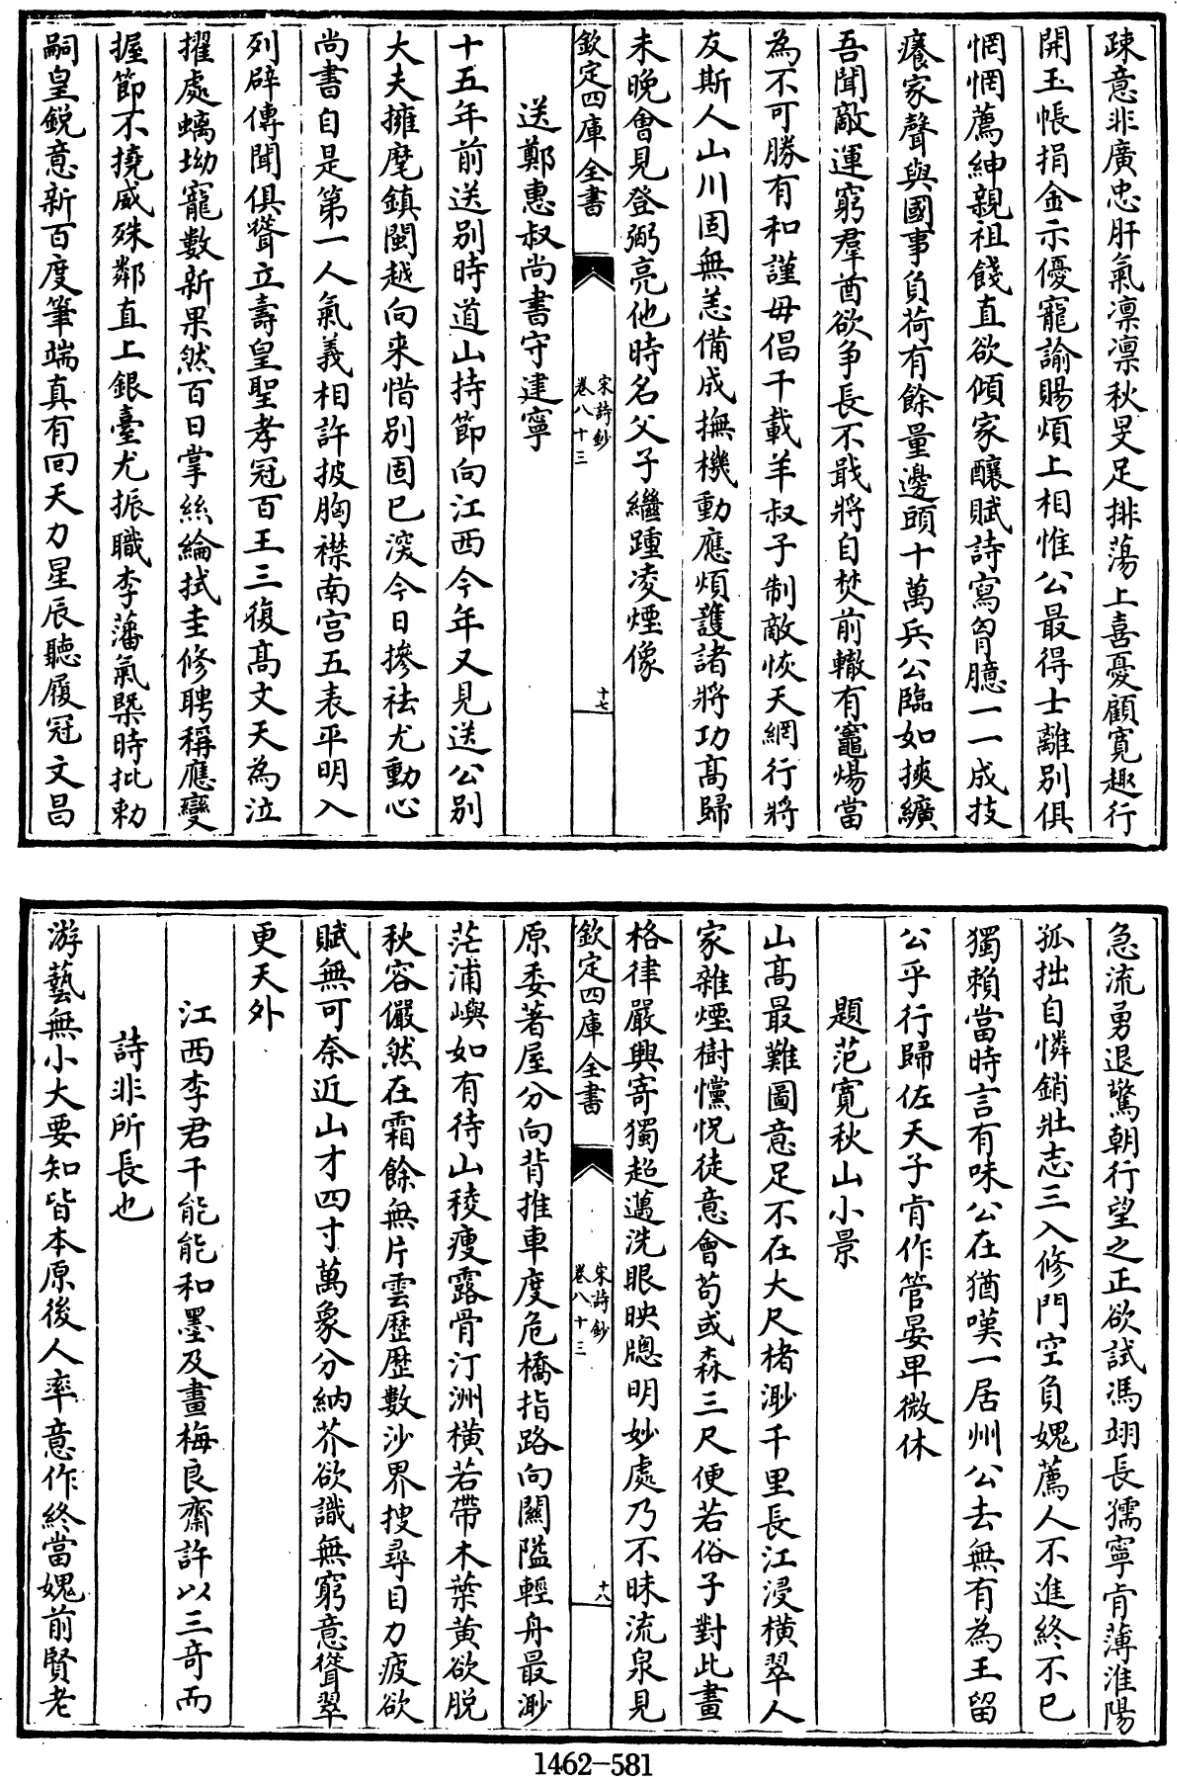 疎意非廣忠肝氣凛凛秋旻足排蕩上喜憂顧寛趣行
開玉帳捐金示優寵諭賜煩上相惟公最得士離別俱
惘惘薦紳親祖餞直欲傾家釀賦詩寫胷臆一一成技
癢家聲與國事負荷有餘量邊頭十萬兵公臨如挾纊
吾聞敵運窮羣酋欲争長不戢將自焚前轍有竈煬當
為不可勝有和謹毋倡千載羊叔子制敵恢天網行將
友斯人山川固無恙備成撫機動應煩護諸將功髙歸
未晚會見登弼亮他時名父子繼踵凌煙像
欽定四庫全書
宋詩鈔
卷八十三
十七
送鄭惠叔尚書守建寧
十五年前送别時道山持節向江西今年又見送公别
大夫擁麾鎮閩越向来惜别固已深今日摻袪尤動心
尚書自是第一人氣義相許披胸襟南宫五表平明入
列辟傳聞俱聳立壽皇聖孝冠百王三復髙文天為泣
擢處螭坳寵數新果然百日掌絲綸拭圭修聘稱應變
握節不撓威殊鄰直上銀臺尤振職李藩氣槩時批勅
嗣皇鋭意新百度筆端真有回天力星辰聽履冠文昌
急流勇退驚朝行望之正欲試馮翊長孺寧肯薄淮陽
孤拙自憐銷壯志三入修門空負媿薦人不進終不已
獨賴當時言有味公在猶嘆一居州公去無有為王留
公乎行歸佐天子肯作管晏卑微休
題范寛秋山小景
山髙最難圖意足不在大尺楮渺千里長江浸横翠人
家雜煙樹戃怳徒意會苟或森三尺便若俗子對此畫
格律嚴興寄獨超邁洗眼映牕明妙處乃不昧流泉見
欽定四庫全書
宋詩鈔
卷八十三
十八
原委著屋分向背推車度危橋指路向關隘輕舟最渺
茫浦嶼如有待山稜瘦露骨汀洲横若帶木葉黄欲脱
秋容儼然在霜餘無片雲歷歷數沙界搜尋目力疲欲
賦無可奈近山才四寸萬象分納芥欲識無窮意聳翠
更天外
江西李君千能能和墨及畫梅良齋許以三奇而
詩非所長也
游藝無小大要知皆本原後人率意作終當媿前賢老
1462-581